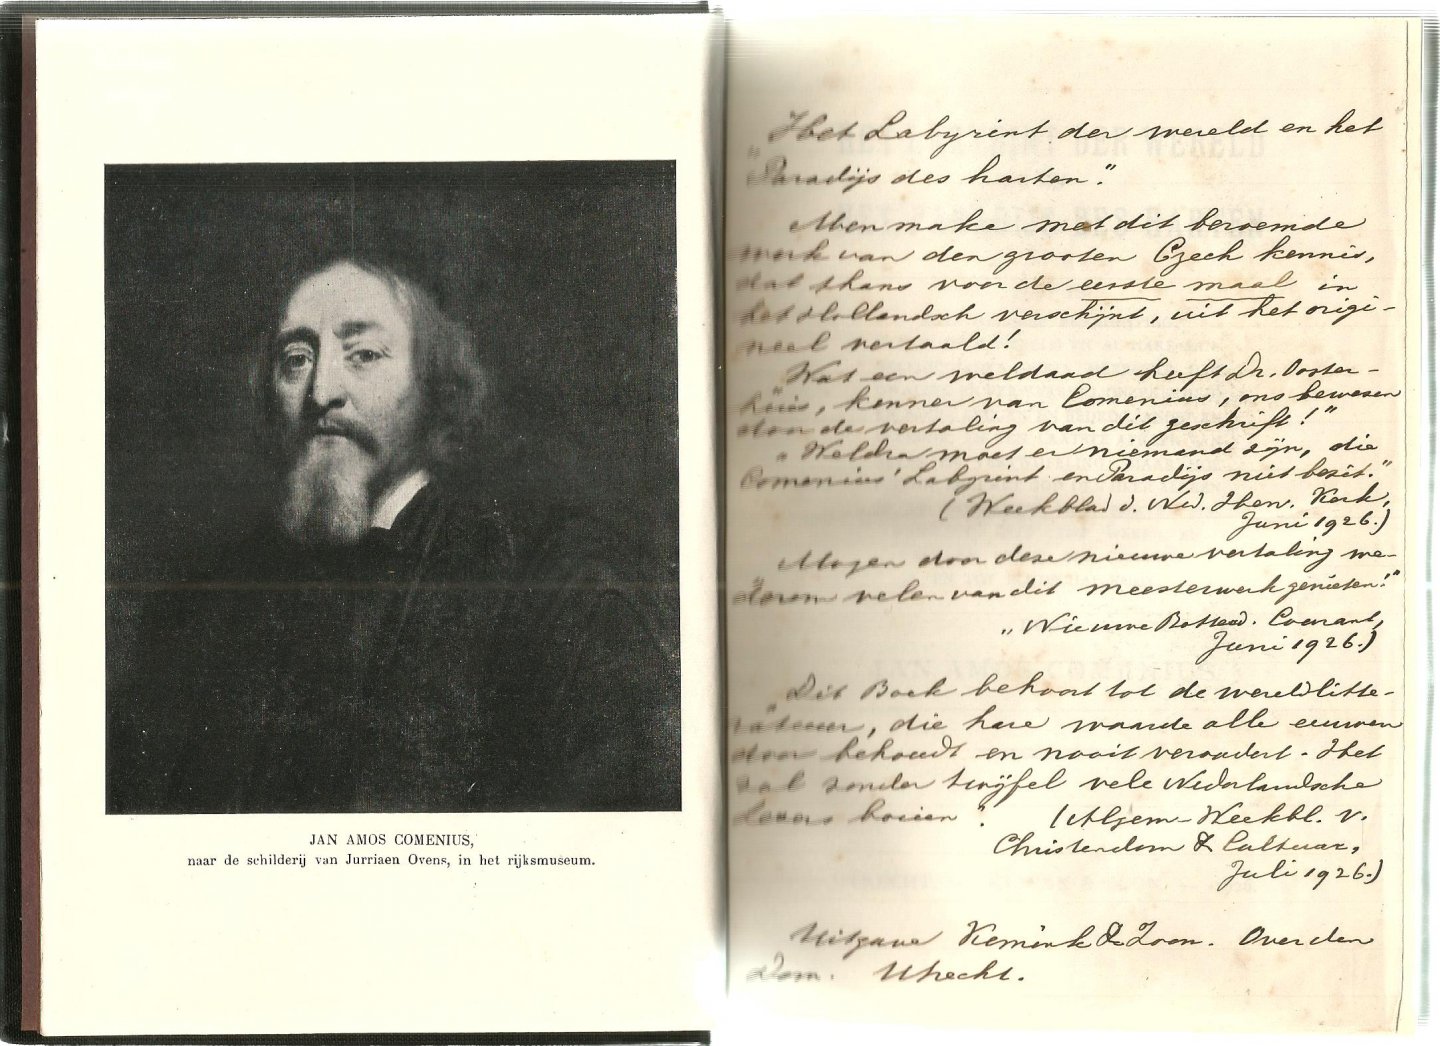 JAN AMOS COMENIUS,
naar de schilderij van Jurriaen Ovens, in het rijksmuseum.
„Het Labyrint der wereld en het
Paradijs des harten."
Men make met dit beroemde
werk van den grooten Czech kennis,
dat thans voor de eerste maal in
het Hollandsch verschijnt, uit het origi-
neel vertaald!
„Wat een weldaad heeft Dr. Ooster-
huis, kenner van Comenius, ons bewezen
door de vertaling van dit geschrift!"
„Weldra moet er niemand zijn, die
Comenius' Labyrint en Paradijs niet bezit."
(Weekblad d. Ned. Herv. Kerk,
Juni 1926.)
„Mogen door deze nieuwe vertaling we-
derom velen van dit meesterwerk genieten!"
„Nieuwe Rotterd. Courant,
Juni 1926.)
„Dit Boek behoort tot de wereldlitte-
ratuur, die hare waarde alle eeuwen
door behoudt en nooit veroudert. Het
zal zonder twijfel vele Nederlandsche
lezers boeien". (Algem-Weekbl. v.
Christendom & Cultuur,
Juli 1926.)
Uitgave Kemink & Zoon. Over den
Dom. Utrecht.